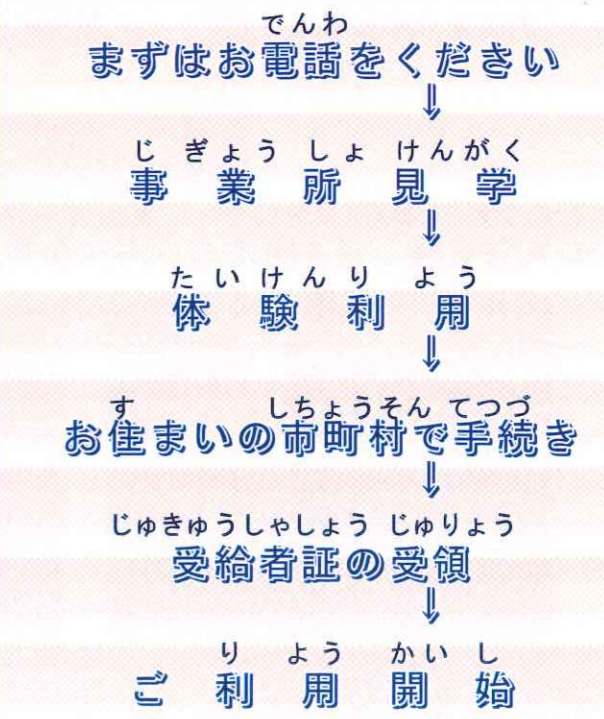 でんわ
まずはお電話をください
⇓
じぎょうしょけんがく
事業所見学
⇓
たいけんりよう
体験利用
⇓
す しちょうそん てつづ
お住まいの市町村で手続き
⇓
じゅきゅうしゃしょう じゅりょう
受給者証の受領
⇓
りようかいし
ご利用開始